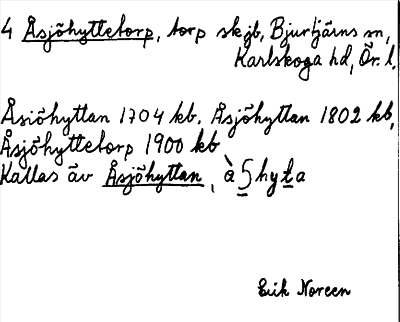 4 Åsjöhyttetorp, torp skjb, Bjurtjärns sn,
Karlskoga hd, Ör. l.
Åsiöhyttan 1704 kb. Åsjöhyttan 1802 kb,
Åsjöhyttetorp 1900 kb
Kallas äv Åsjöhyttan, 
Erik Noreen